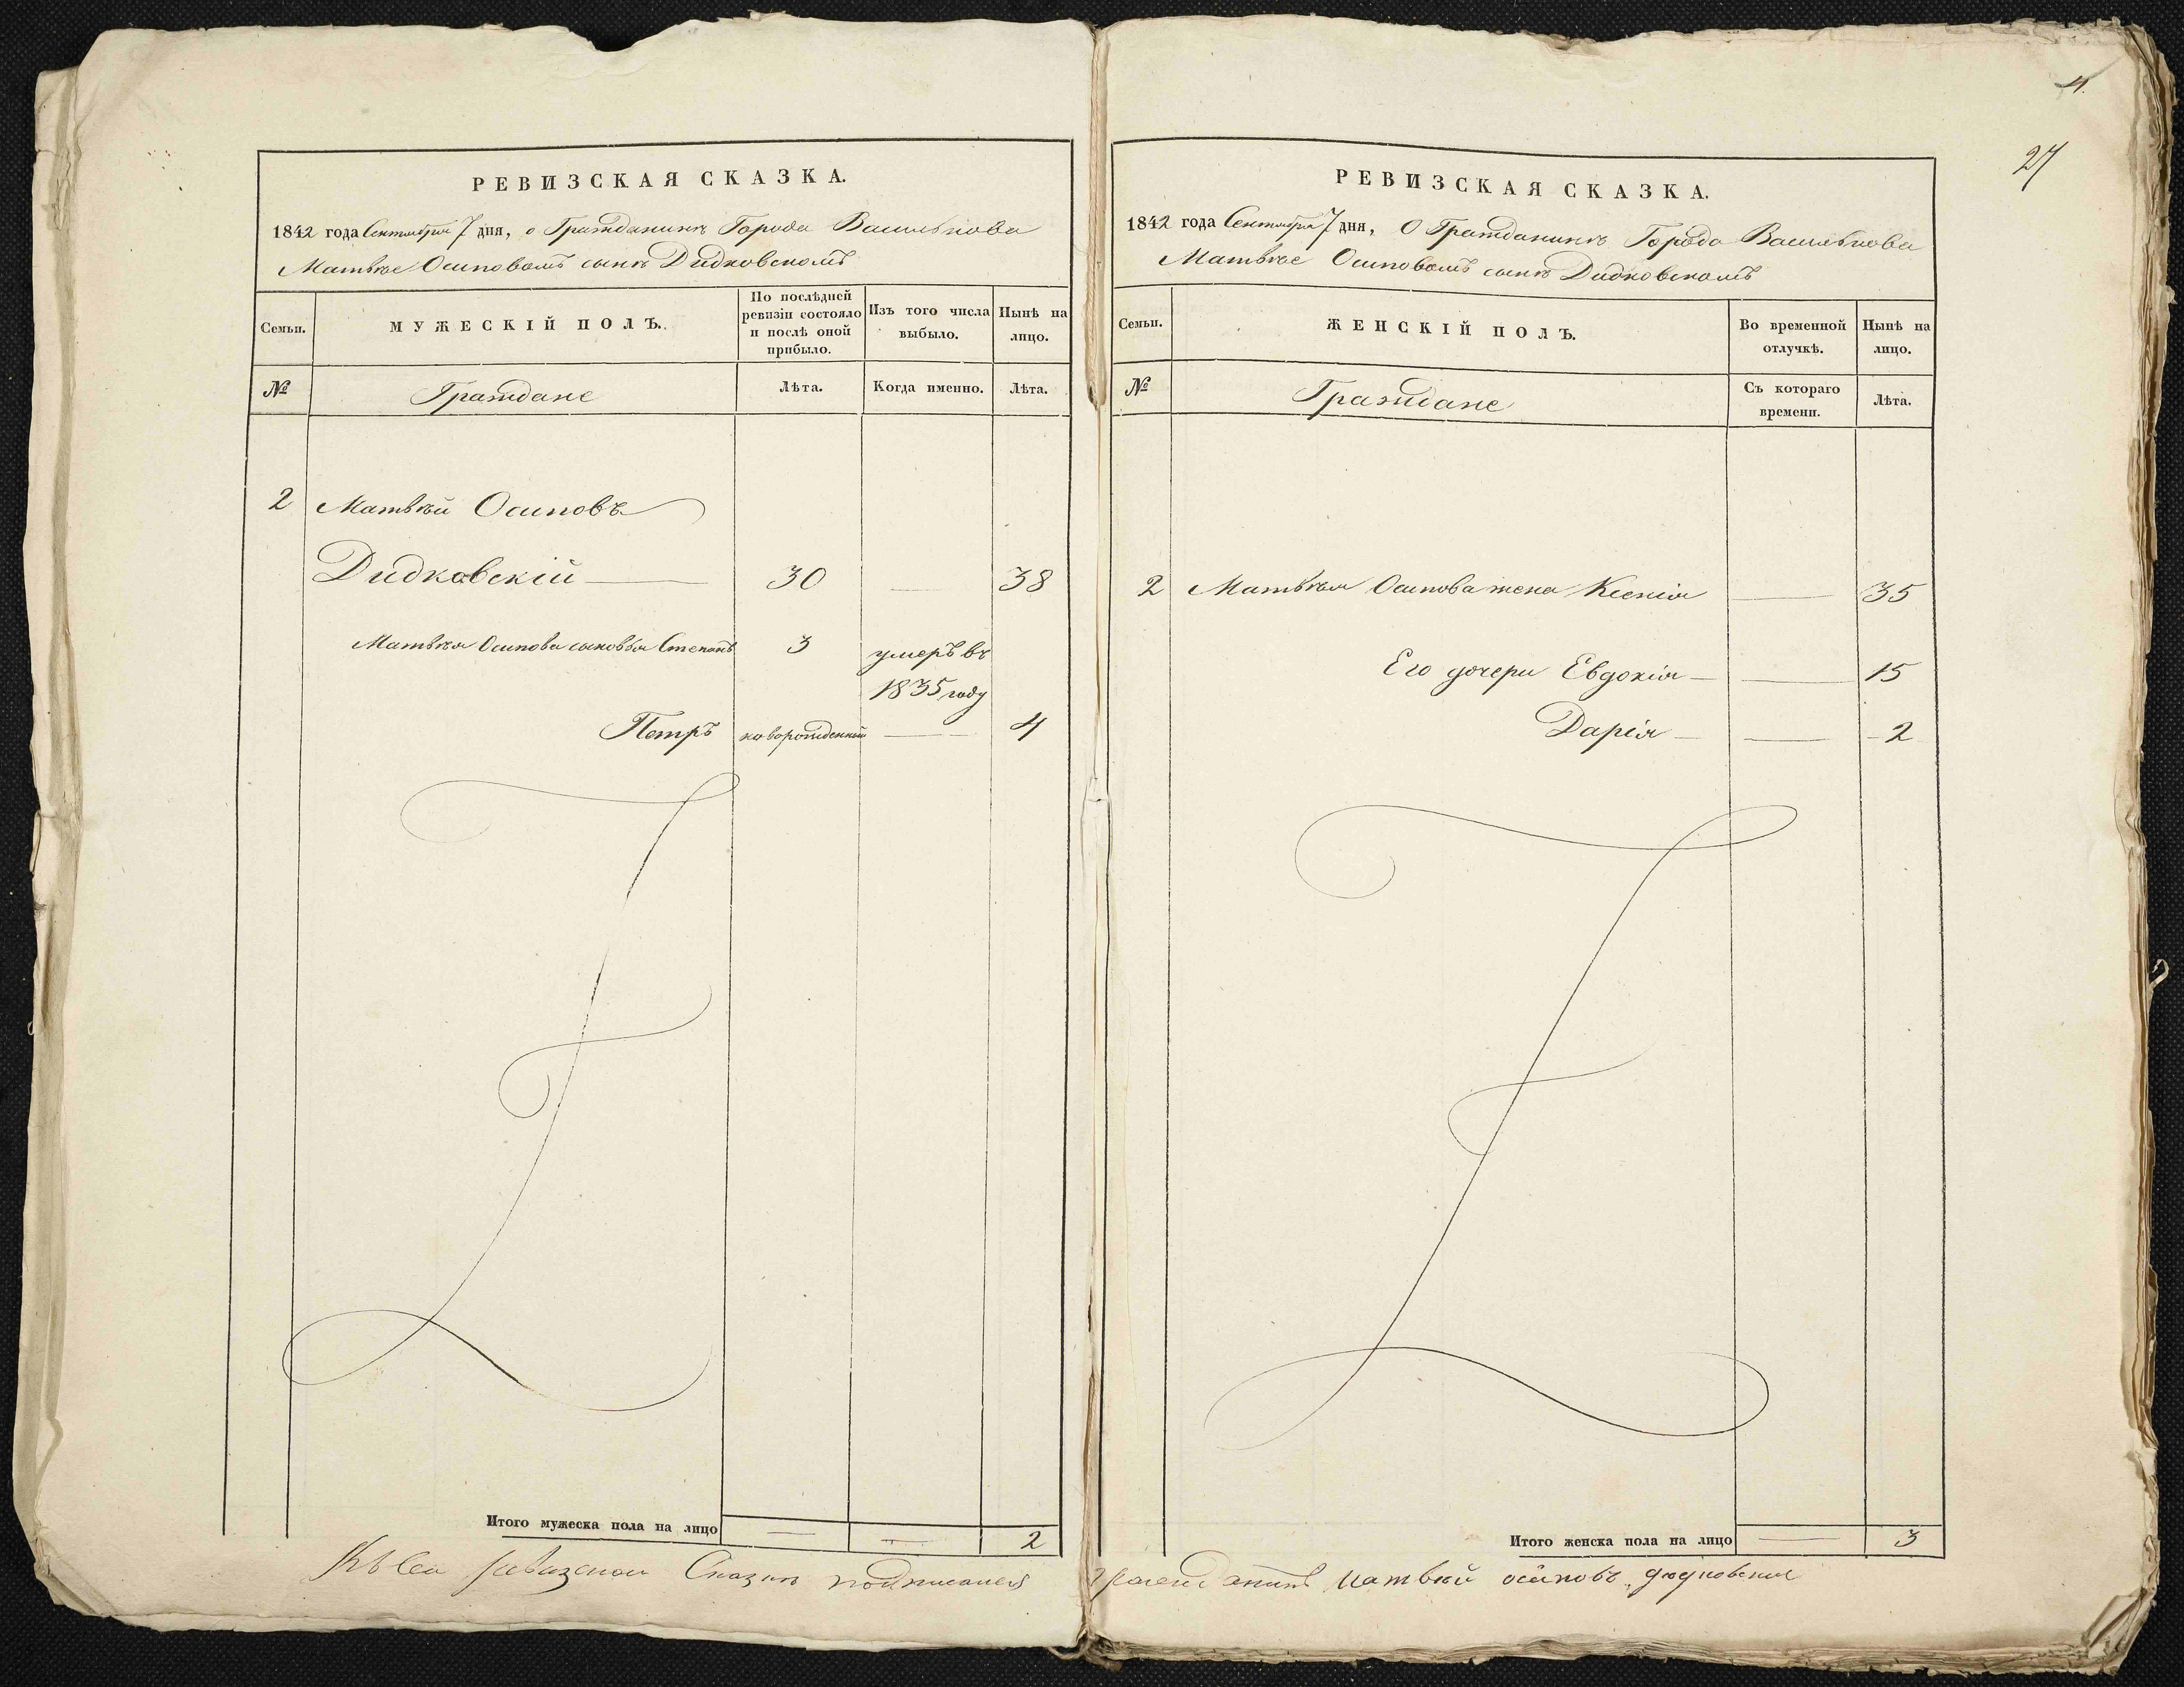 РЕВИЗСКАЯ СКАЗКА.
1842 года Сентября 7 дня, о Гражданинѣ Города Василькова
Матвѣе Осиповомъ сынѣ Дидковскомъ
Семьи.
МУЖЕСКІЙ ПОЛЪ.
По послѣдней
ревизіи состояло
и послѣ оной
прибыло.
Изъ того числа
выбыло.
Нынѣ на
лицо.
№
Граждане
Лѣта.
Когда именно.
Лѣта.
2 Матвѣй Осиповъ
Дидковскій — 30 — 38
Матвѣя Осипова сыновья Степанъ 3 умеръ въ
1835 году
Петръ новорожденный — 4
Итого мужеска пола на лицо — — 2
4.
27
РЕВИЗСКАЯ СКАЗКА.
1842 года Сентября 7 дня, О Гражданинѣ Города Василькова
Матвѣе Осиповомъ сынѣ Дидковскомъ
Семьи.
ЖЕНСКІЙ ПОЛЪ.
Во временной
отлучкѣ.
Нынѣ на
лицо.
№
Граждане
Съ котораго
времени.
Лѣта.
2 Матвѣя Осипова жена Ксенія — 35
Его дочери Евдокія — — 15
Дарія — — 2
Итого женска пола на лицо — 3
Къ сей Сказки подписался гражданинъ матвѣй осиповъ